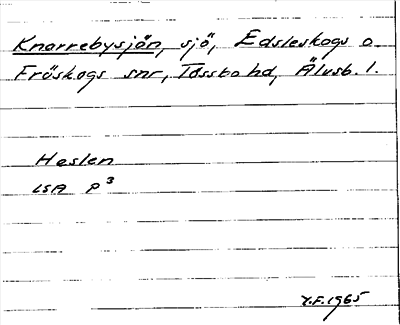 Knarrebysjön, sjö, Edsleskogs o.
Fröskogs snr, Tössbo hd, Älvsb. l.
Heslen
LSA P³
Y.F.1965